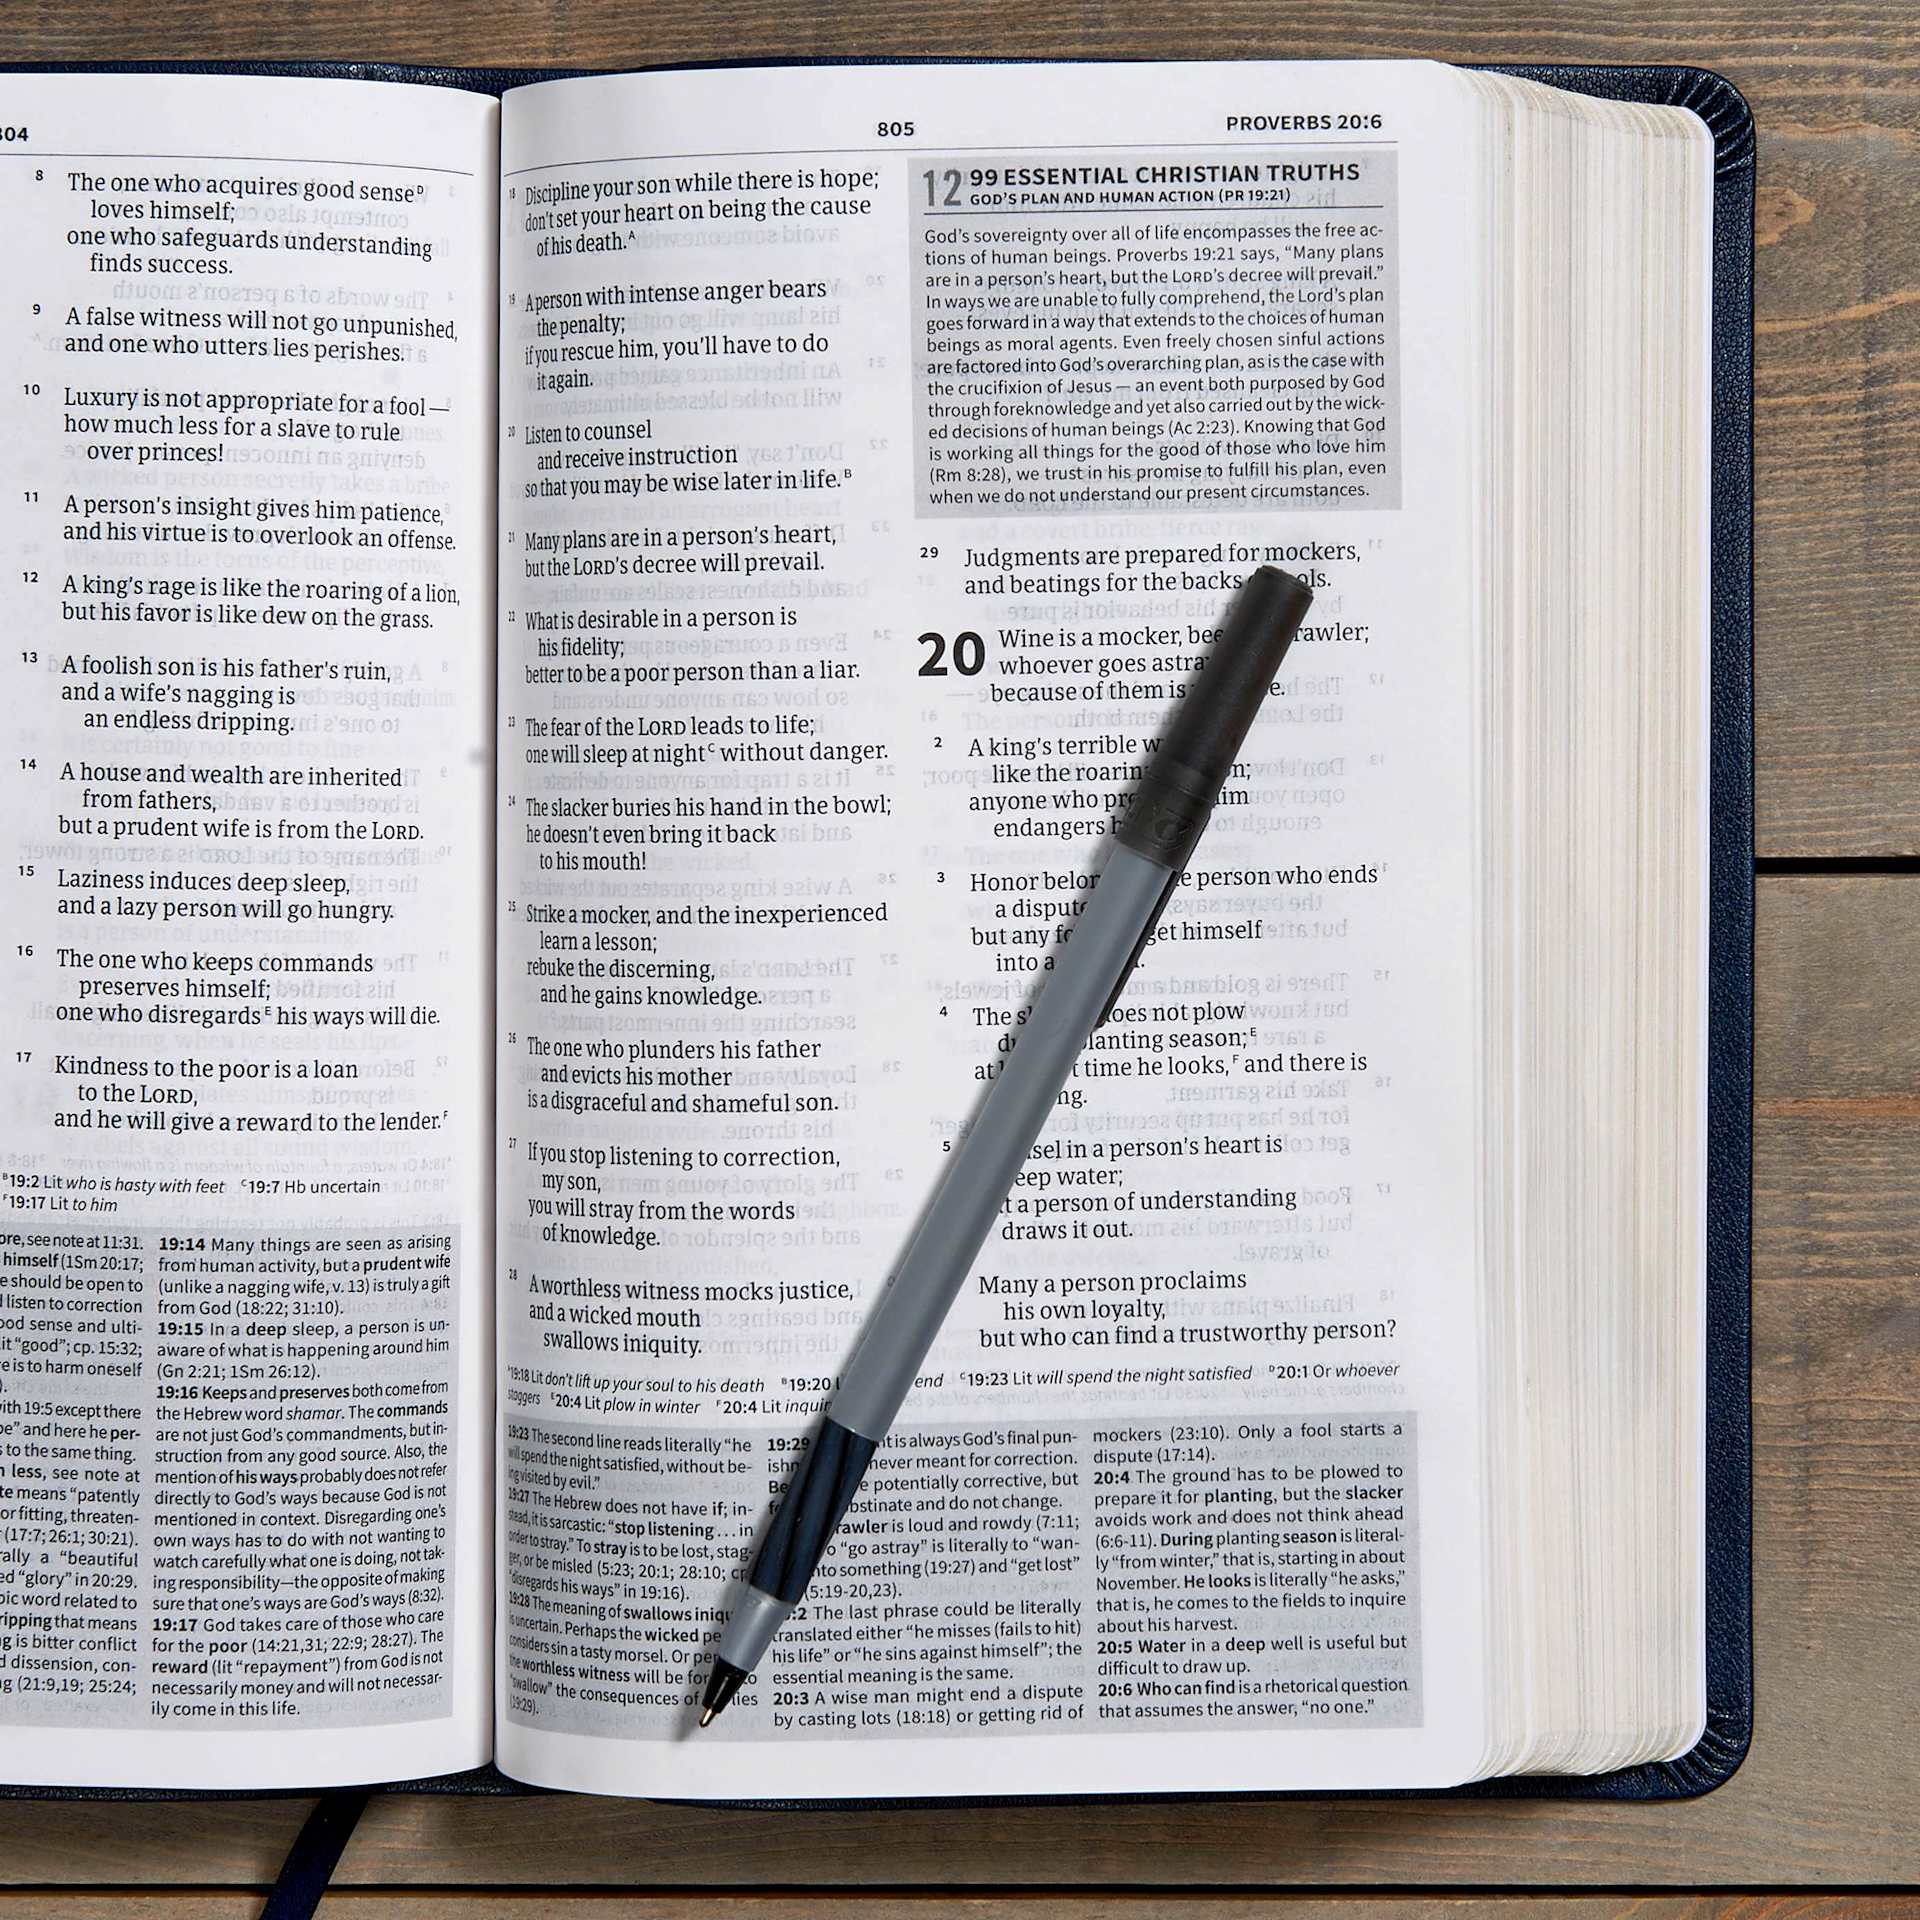 804
8 The one who acquires good senseᴰ
loves himself;
one who safeguards understanding
finds success.
9 A false witness will not go unpunished,
and one who utters lies perishes.
10 Luxury is not appropriate for a fool —
how much less for a slave to rule
over princes!
11 A person's insight gives him patience,
and his virtue is to overlook an offense.
12 A king's rage is like the roaring of a lion,
but his favor is like dew on the grass.
13 A foolish son is his father's ruin,
and a wife's nagging is
an endless dripping.
14 A house and wealth are inherited
from fathers,
but a prudent wife is from the LORD.
15 Laziness induces deep sleep,
and a lazy person will go hungry.
16 The one who keeps commands
preserves himself;
one who disregardsᴱ his ways will die.
17 Kindness to the poor is a loan
to the LORD,
and he will give a reward to the lender.ꟳ
ᴮ19:2 Lit who is hasty with feet ᶜ19:7 Hb uncertain
ꟳ19:17 Lit to him
ore, see note at 11:31.
himself (1Sm 20:17;
e should be open to
listen to correction
ood sense and ulti-
it "good"; cp. 15:32;
e is to harm oneself
).
with 19:5 except there
" and here he per-
s to the same thing.
less, see note at
te means "patently
or fitting, threaten-
(17:7; 26:1; 30:21).
rally a "beautiful
ed "glory" in 20:29.
pic word related to
ripping that means
g is bitter conflict
d dissension, con-
g (21:9,19; 25:24;
19:14 Many things are seen as arising
from human activity, but a prudent wife
(unlike a nagging wife, v. 13) is truly a gift
from God (18:22; 31:10).
19:15 In a deep sleep, a person is un-
aware of what is happening around him
(Gn 2:21; 1Sm 26:12).
19:16 Keeps and preserves both come from
the Hebrew word shamar. The commands
are not just God's commandments, but in-
struction from any good source. Also, the
mention of his ways probably does not refer
directly to God's ways because God is not
mentioned in context. Disregarding one's
own ways has to do with not wanting to
watch carefully what one is doing, not tak-
ing responsibility—the opposite of making
sure that one's ways are God's ways (8:32).
19:17 God takes care of those who care
for the poor (14:21,31; 22:9; 28:27). The
reward (lit "repayment") from God is not
necessarily money and will not necessar-
ily come in this life.
805
PROVERBS 20:6
18 Discipline your son while there is hope;
don't set your heart on being the cause
of his death.ᴬ
19 A person with intense anger bears
the penalty;
if you rescue him, you'll have to do
it again.
20 Listen to counsel
and receive instruction
so that you may be wise later in life.ᴮ
21 Many plans are in a person's heart,
but the LORD's decree will prevail.
22 What is desirable in a person is
his fidelity;
better to be a poor person than a liar.
23 The fear of the LORD leads to life;
one will sleep at nightᶜ without danger.
24 The slacker buries his hand in the bowl;
he doesn't even bring it back
to his mouth!
25 Strike a mocker, and the inexperienced
learn a lesson;
rebuke the discerning,
and he gains knowledge.
26 The one who plunders his father
and evicts his mother
is a disgraceful and shameful son.
27 If you stop listening to correction,
my son,
you will stray from the words
of knowledge.
28 A worthless witness mocks justice,
and a wicked mouth
swallows iniquity.
12 99 ESSENTIAL CHRISTIAN TRUTHS
GOD'S PLAN AND HUMAN ACTION (PR 19:21)
God's sovereignty over all of life encompasses the free ac-
tions of human beings. Proverbs 19:21 says, "Many plans
are in a person's heart, but the LORD's decree will prevail."
In ways we are unable to fully comprehend, the Lord's plan
goes forward in a way that extends to the choices of human
beings as moral agents. Even freely chosen sinful actions
are factored into God's overarching plan, as is the case with
the crucifixion of Jesus — an event both purposed by God
through foreknowledge and yet also carried out by the wick-
ed decisions of human beings (Ac 2:23). Knowing that God
is working all things for the good of those who love him
(Rm 8:28), we trust in his promise to fulfill his plan, even
when we do not understand our present circumstances.
29 Judgments are prepared for mockers,
and beatings for the backs ols.
20 Wine is a mocker, bee rawler;
whoever goes astra
because of them is e.
2 A king's terrible w
like the roarin n;
anyone who pro im
endangers h
3 Honor belon e person who ends
a dispute
but any fo get himself
into a
4 The s oes not plow
du lanting season;ᴱ
at time he looks,ꟳ and there is
ng.
5 sel in a person's heart is
eep water;
t a person of understanding
draws it out.
Many a person proclaims
his own loyalty,
but who can find a trustworthy person?
ᴬ19:18 Lit don't lift up your soul to his death ᴮ19:20 L end ᶜ19:23 Lit will spend the night satisfied ᴰ20:1 Or whoever
staggers ᴱ20:4 Lit plow in winter ꟳ20:4 Lit inquir
19:23 The second line reads literally "he
will spend the night satisfied, without be-
ing visited by evil."
19:27 The Hebrew does not have if; in-
stead, it is sarcastic: "stop listening . . . in
order to stray." To stray is to be lost, stag-
ger, or be misled (5:23; 20:1; 28:10; cp
"disregards his ways" in 19:16).
19:28 The meaning of swallows iniqu
is uncertain. Perhaps the wicked pe
considers sin a tasty morsel. Or per
the worthless witness will be for to
"swallow" the consequences of lies
(19:29).
19:29 nt is always God's final pun-
ishm never meant for correction.
Be e potentially corrective, but
fo bstinate and do not change.
rawler is loud and rowdy (7:11;
o "go astray" is literally to "wan-
nto something (19:27) and "get lost"
(5:19-20,23).
:2 The last phrase could be literally
translated either "he misses (fails to hit)
his life" or "he sins against himself"; the
essential meaning is the same.
20:3 A wise man might end a dispute
by casting lots (18:18) or getting rid of
mockers (23:10). Only a fool starts a
dispute (17:14).
20:4 The ground has to be plowed to
prepare it for planting, but the slacker
avoids work and does not think ahead
(6:6-11). During planting season is literal-
ly "from winter," that is, starting in about
November. He looks is literally "he asks,"
that is, he comes to the fields to inquire
about his harvest.
20:5 Water in a deep well is useful but
difficult to draw up.
20:6 Who can find is a rhetorical question
that assumes the answer, "no one."